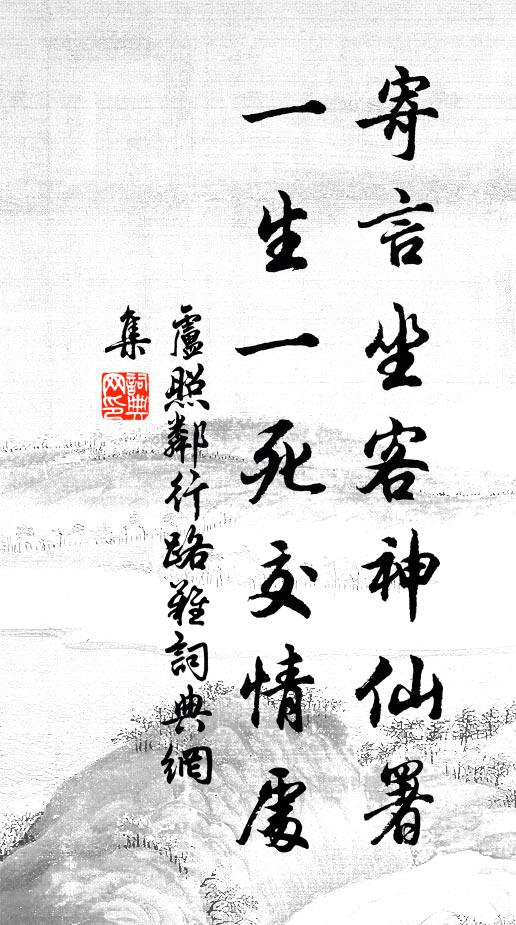 寄言坐客神仙署
一生一死交情處
盧照鄰行路難詞典網
集
詞典
网印